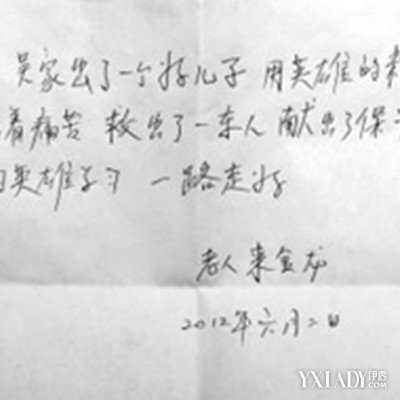 吴家出了一个好儿子 用英雄的
着痛苦 救出了一车人 献出了保
的英雄学习 一路走好
老人 金龙
2012年六月二日
YXLADY.COM 伊秀